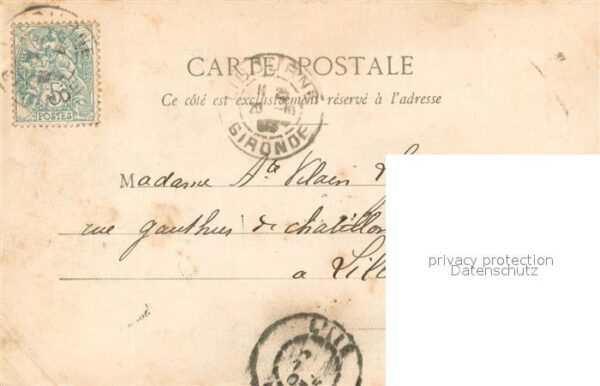 5
POSTES
CARTE POSTALE
Ce côté est exclusivement réservé à l'adresse
GIRONDE
Madame Ate Vilain
rue gauthier de chatillon
a Lill
privacy protection
Datenschutz
LILLE